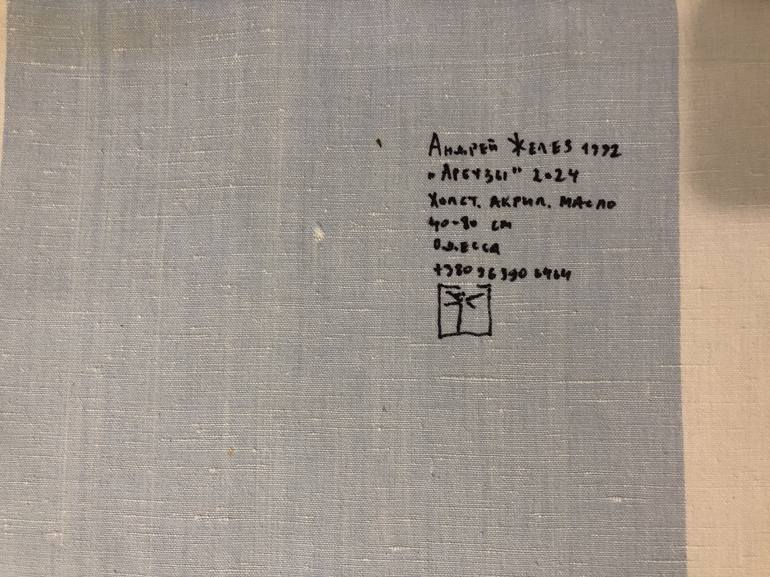 Андрей Желез 1992
„Арбузы" 2024
Холст, акрил, масло
40-80 см
Одесса